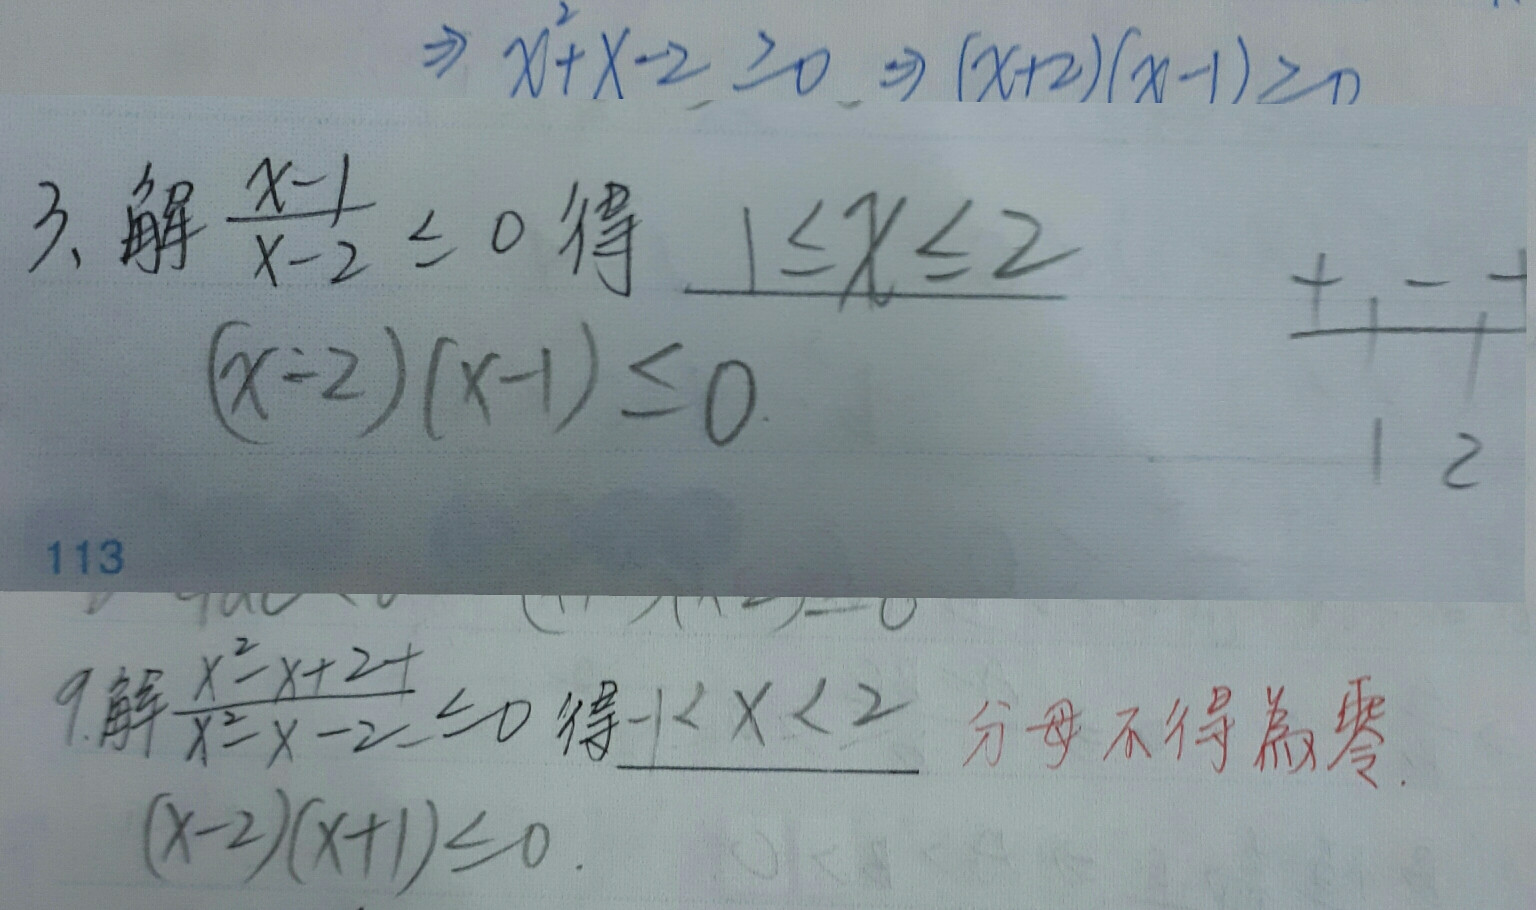 ⇒ x²+x-2 ≥0 ⇒ (x+2)(x-1)≥0
3、解 (x-1)/(x-2) ≤ 0 得 1≤x≤2
+ - +
(x-2)(x-1)≤0.
1 2
113
9.解 (x²-x+2+)/(x²-x-2) ≤0 得 -1<x<2 分母不得為零.
(x-2)(x+1)≤0.